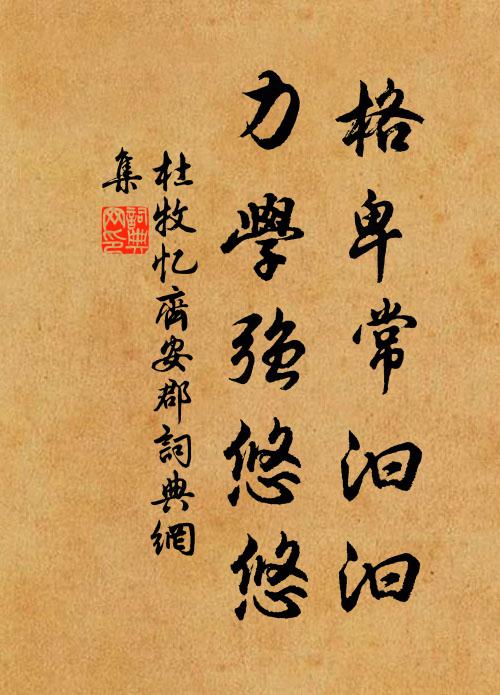 格卑常汩汩
力學強悠悠
杜牧忆齊安郡詞典網
集
詞典
网印